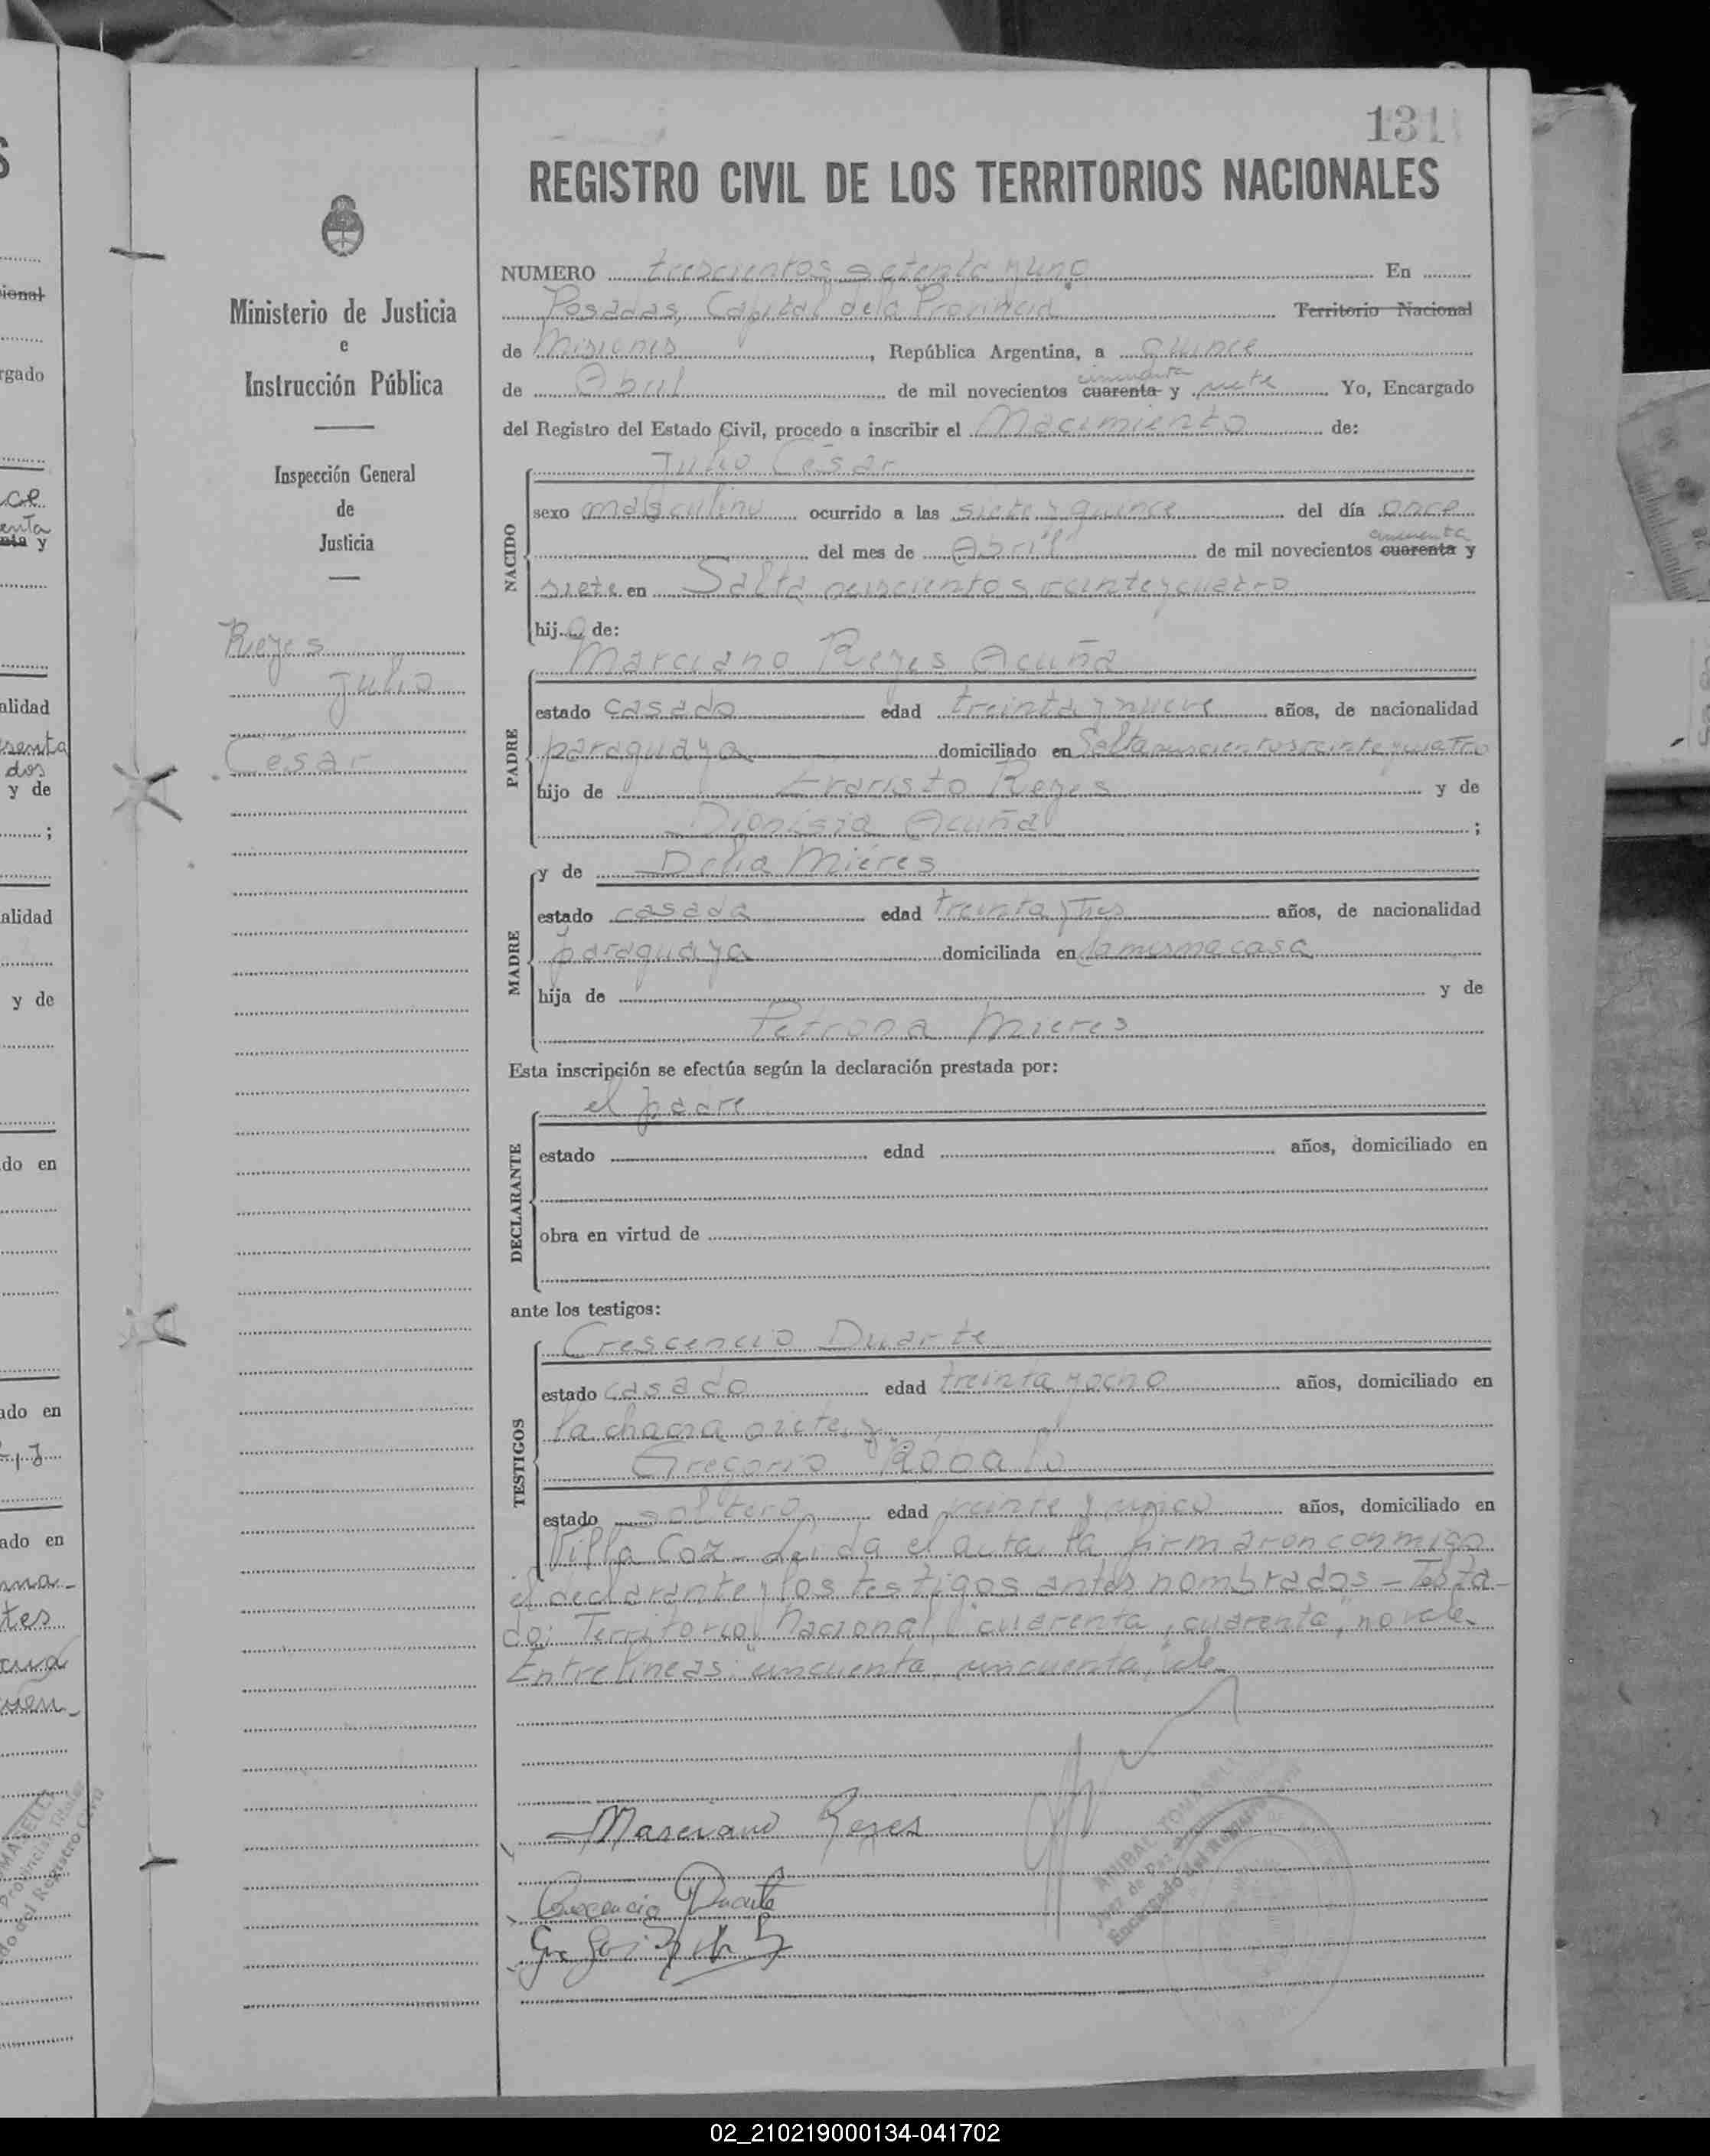 131
REGISTRO CIVIL DE LOS TERRITORIOS NACIONALES
Ministerio de Justicia
e
Instrucción Pública
Inspección General
de
Justicia
Reyes
Julio
César
NUMERO trescientos setenta y uno En
Posadas, Capital de la Provincia Territorio Nacional
de Misiones, República Argentina, a quince
de Abril de mil novecientos cuarenta cincuenta y siete Yo, Encargado
del Registro del Estado Civil, procedo a inscribir el Nacimiento de:
NACIDO
Julio César
sexo masculino ocurrido a las siete y quince del día once
del mes de Abril de mil novecientos cuarenta cincuenta y
siete en Salta seiscientos veinte y cuatro
hijo de:
PADRE
Marciano Reyes Acuña
estado casado edad treinta y nueve años, de nacionalidad
paraguaya domiciliado en Salta seiscientos veinte y cuatro
hijo de Evaristo Reyes y de
Dionisia Acuña ;
MADRE
y de Delia Mieres
estado casada edad treinta y tres años, de nacionalidad
paraguaya domiciliada en la misma casa
hija de y de
Petrona Mieres
Esta inscripción se efectúa según la declaración prestada por:
DECLARANTE
el padre
estado edad años, domiciliado en
obra en virtud de
ante los testigos:
TESTIGOS
Crescencio Duarte
estado casado edad treinta y ocho años, domiciliado en
la chacra siete y
Gregorio
estado soltero edad veinte y cinco años, domiciliado en
Villa Coz - leída el acta la firmaron conmigo
el declarante y los testigos antes nombrados - Testa-
do: Territorio Nacional, "cuarenta, cuarenta", no vale
Entrelíneas: "cincuenta, cincuenta", vale
Marciano Reyes
Crecencio Duarte
ANIBAL TOMASELLI
Juez de Paz
Encargado del Registro Civil
ional
rgado
alidad
dos
y de
;
alidad
y de
do en
ado en
ado en
tes
02_210219000134-041702